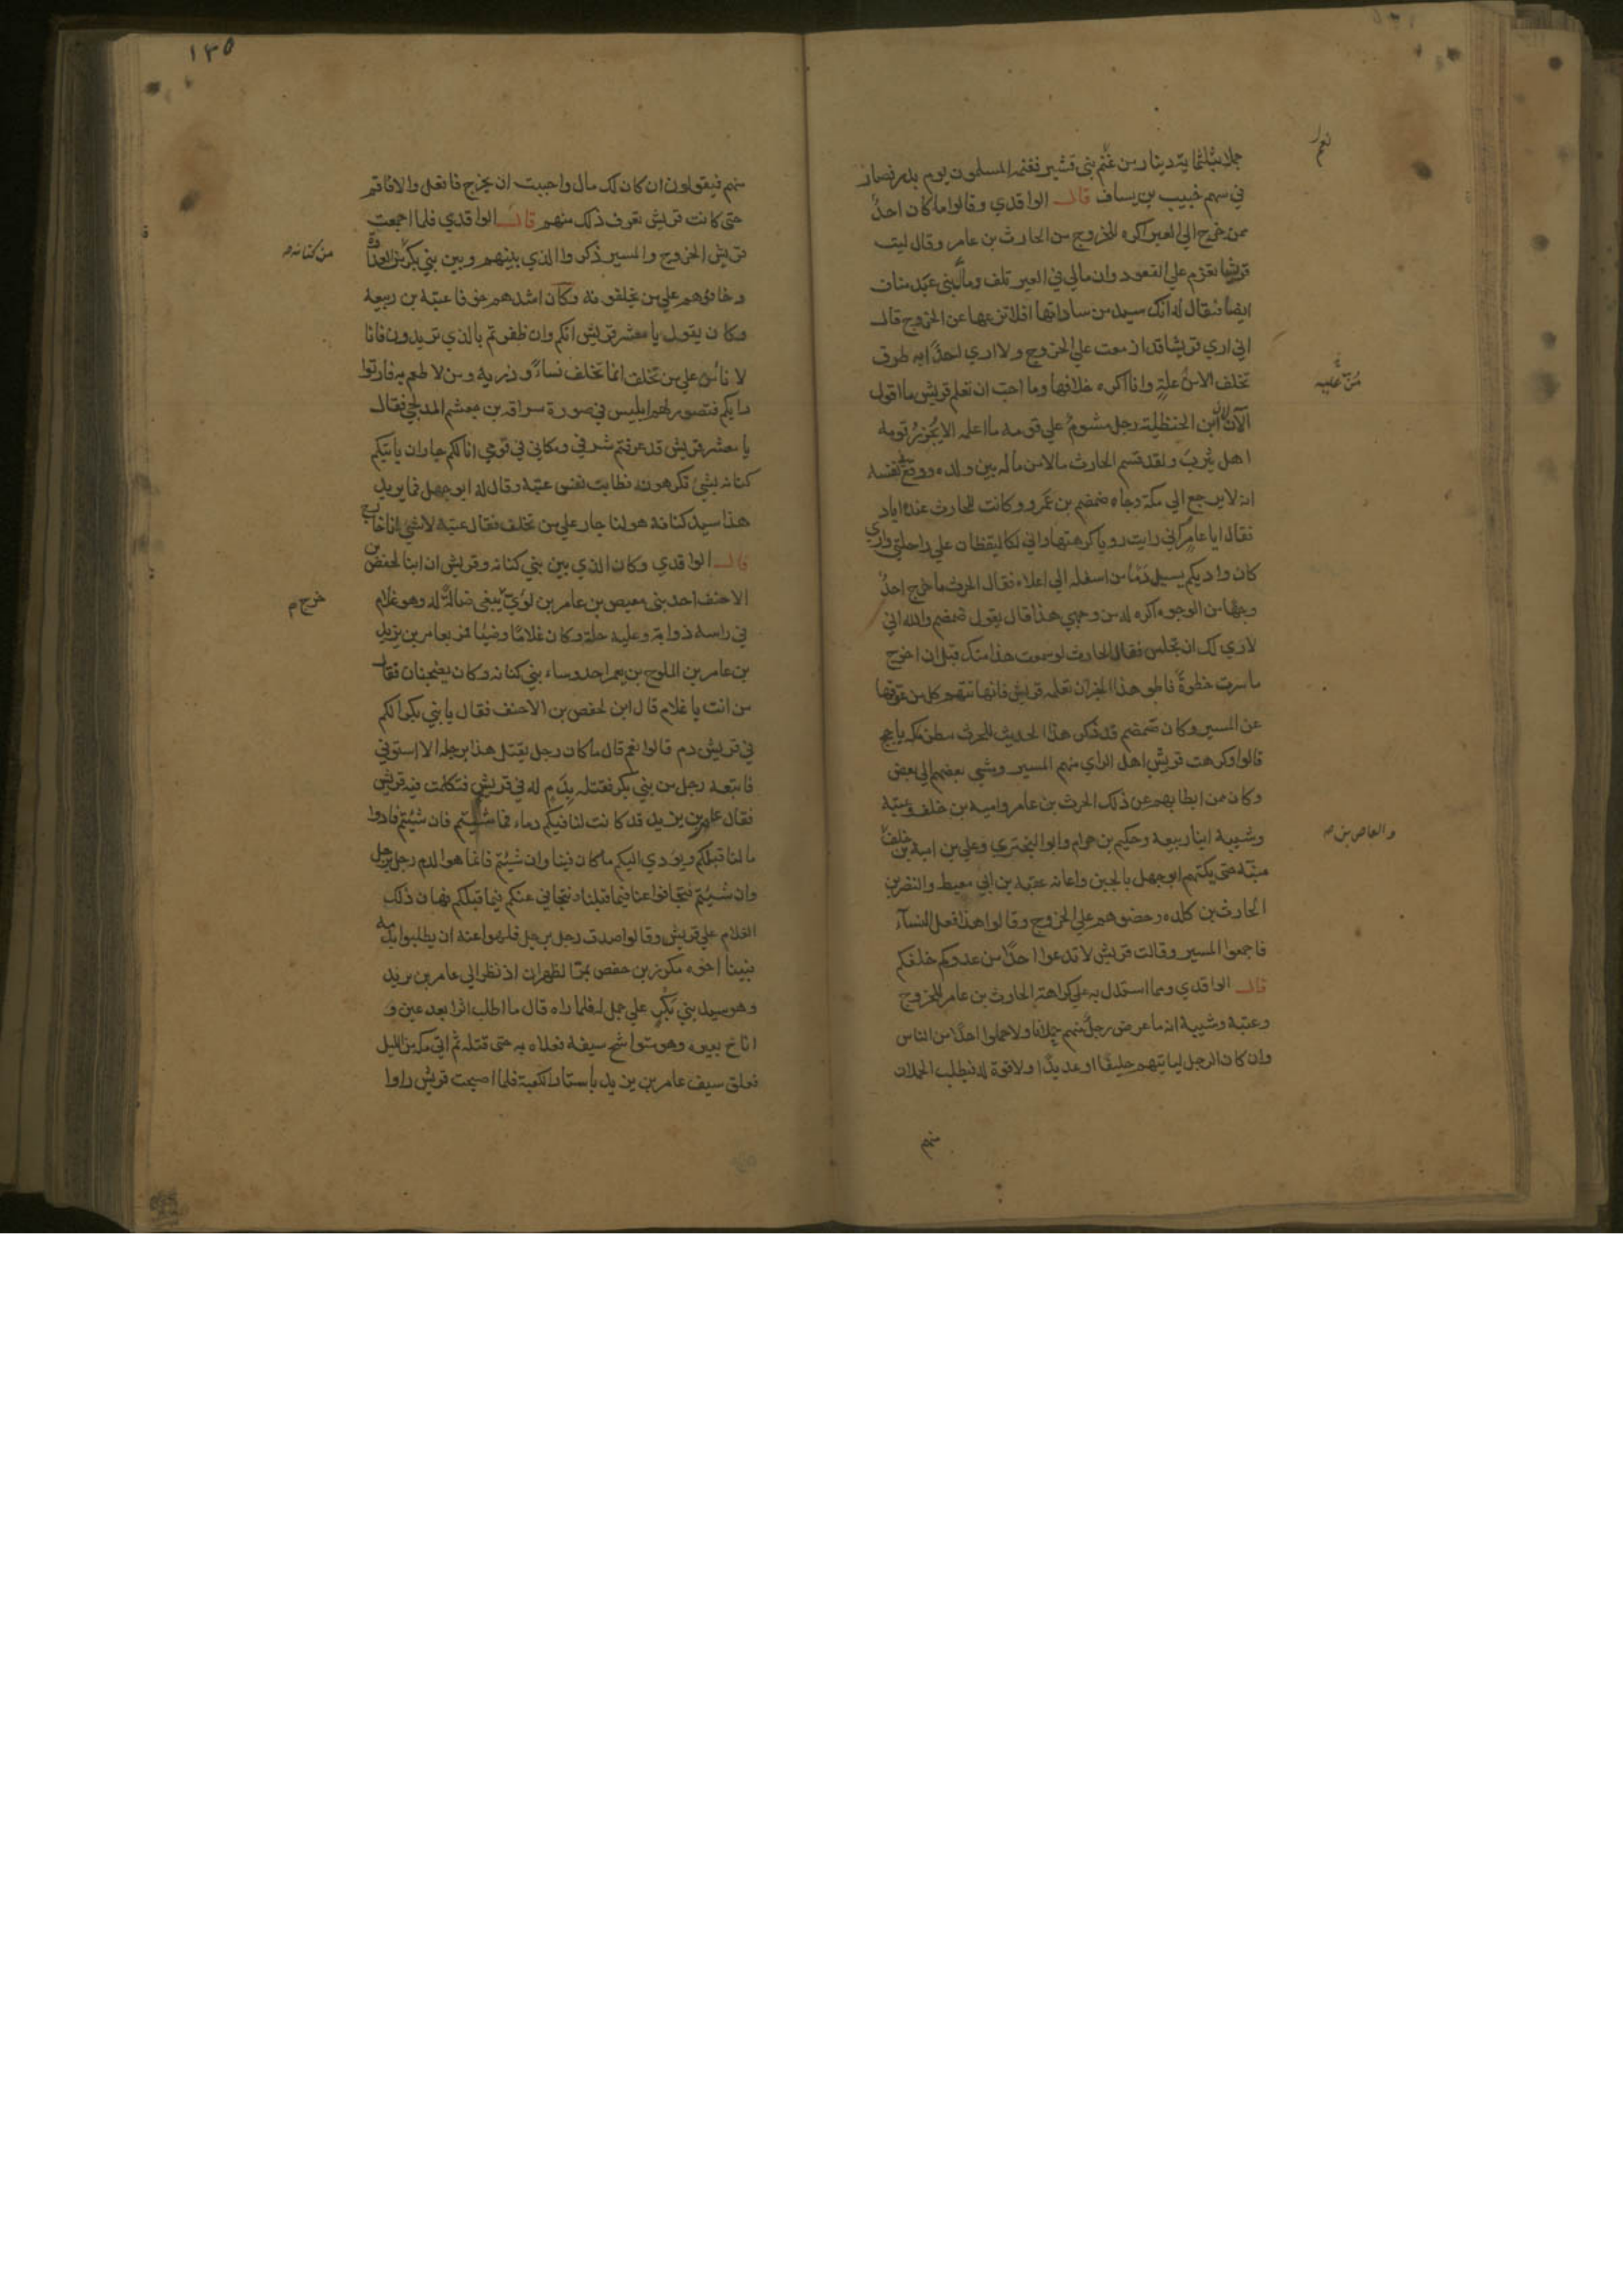 جملا بثلثماية دينار من غنم بني قشير فغنمه المسلمون يوم بدر فصار
نعم
في سهم خبيب بن يساف قال الواقدي وقالوا ما كان احدٌ
ممن خرج الي العير اكره للخروج من الحارث بن عامر وقال ليت
قريشا تعزم علي القعود وان مالي في العير تلف ومال بني عبد مناف
ايضا فيقال له انك سيد من ساداتها افلا تزعها عن الخروج قال
اني اري قريشا قد ازمعت علي الخروج ولا اري احدًا به طرق
تخلف الا من علةٍ وانا اكره خلافها وما احب ان تعلم قريش ما اقول
من علّيه
الآن ان ابن الحنظلية رجل مشومٌ علي قومه ما اعلمه الا يُحرزُ قومه
اهل يثربَ ولقد قسم الحارث مالا من ماله بين ولده ووقع في نفسه
انه لا يرجع الي مكة وجاه ضمضم بن عَمرو وكانت للحارث عنده اياد
فقال ايا عامرٍ اني رايت رويا كرهتها واني لكاليقظان علي راحلتي واري
كان واديكم يسيل دمًا من اسفله الي اعلاه فقال الحرث ما خرج احدٌ
وجهًا من الوجوه اكره له من وجهي هذا قال يقول ضمضم والله اني
لاري لك ان تجلس فقال الحارث لو سمعت هذا منك قبل ان اخرج
ما سرت خطوةً فاطو هذا الخبر ان تعلمه قريش فانها تتهم كل من عوقها
عن المسير وكان ضمضم قد ذكر هذا الحديث للحرث ببطن مكة ياجج
قالوا وكرهت قريش اهل الراي منهم المسير ومشي بعضهم الي بعض
وكان من ابطا بهم عن ذلك الحرث بن عامر وامية بن خلف وعتبة
وشيبة ابنا ربيعة وحكيم بن حزام وابو البختري وعلي بن امية بن خلف
والعاص بن صح
منبّه حتي بكّتهم ابو جهل بالجبن واعانه عقبة بن ابي معيط والنضر بن
الحارث بن كلده وحضوهم علي الخروج وقالوا هذا فعل النسآء
فاجمعوا المسير وقالت قريش لا تدعوا احدًا من عدوكم خلفكم
قال الواقدي ومما استدل به علي كراهة الحارث بن عامر للخروج
وعتبة وشيبة انه ما عرض رجلٌ منهم حملانا ولا حملوا احدًا من الناس
وان كان الرجل لياتيهم حليفًا او عديدًا ولا قوة له فيطلب الحملان
منهم
١٣٥
منهم فيقولون ان كان لك مال واحببت ان تخرج فافعل والا فاقم
حتي كانت قريش تعرف ذلك منهم قال الواقدي فلما اجمعت
قريش الخروج والمسير ذكروا الذي بينهم وبين بني بكر من العداوة
من كنانة صح
وخافوهم علي من يخلفونه وكان اشدهم خوفا عتبة بن ربيعة
وكان يقول يا معشر قريش انكم وان ظفرتم بالذي تريدون فانا
لا نامن علي من تخلف انما تخلف نساءً وذرية ومن لا طعم به فارتوا
رايكم فتصور لهم ابليس في صورة سراقة بن جعشم المدلجي فقال
يا معشر قريش قد عرفتم شرفي ومكاني في قومي انا لكم جار ان ياتيكم
كنانه بشيٍ تكرهونه فطابت نفس عتبة وقال له ابو جهل فما تريد
هذا سيد كنانة هو لنا جار علي من تخلف فقال عتبة لا شي انا خارج
قال الواقدي وكان الذي بين بني كنانة وقريش ان ابنا لحفص بن
الاحنف احد بني معيص بن عامر بن لوي يبغي ضالةً له وهو غلام
خرج م
في راسه ذوابة وعليه حلة وكان غلامًا وضيًا فمر بعامر بن يزيد
بن عامر بن الملوح بن يعمر احد روساء بني كنانه وكان بضجنان فقال
من انت يا غلام قال ابن لحفص بن الاحنف فقال يا بني بكر الكم
في قريش دم قالوا نعم قال ما كان رجل يقتل هذا برجله الا استوفي
فاتبعه رجل من بني بكر فقتله بدَمٍ له في قريش فتكلمت فيه قريش
فقال عامر بن يزيد قد كانت لنا فيكم دماء فما شئتم فان شئتم فادوا
ما لنا قبلكم ونودي اليكم ما كان فينا وان شئتم فانما هو الدم رجل برجل
وان شئتم فتجافوا عنا فيما قبلنا ونتجافي عنكم فيما قبلكم فهان ذلك
الغلام علي قريش وقالوا صدق رجل برجل فلهوا عنه ان يطلبوا بدمه
فبينا اخوه مكرز بن حفص بمر الظهران اذ نظر الي عامر بن يزيد
وهو سيد بني بَكْرٍ علي جمل له فلما راه قال ما اطلب اثرا بعد عين و
اناخ بعيره وهو متواشح سيفه فعلاه به حتي قتله ثم اتي مكة من الليل
فعلق سيف عامر بن يزيد باستار الكعبة فلما اصبحت قريش راوا